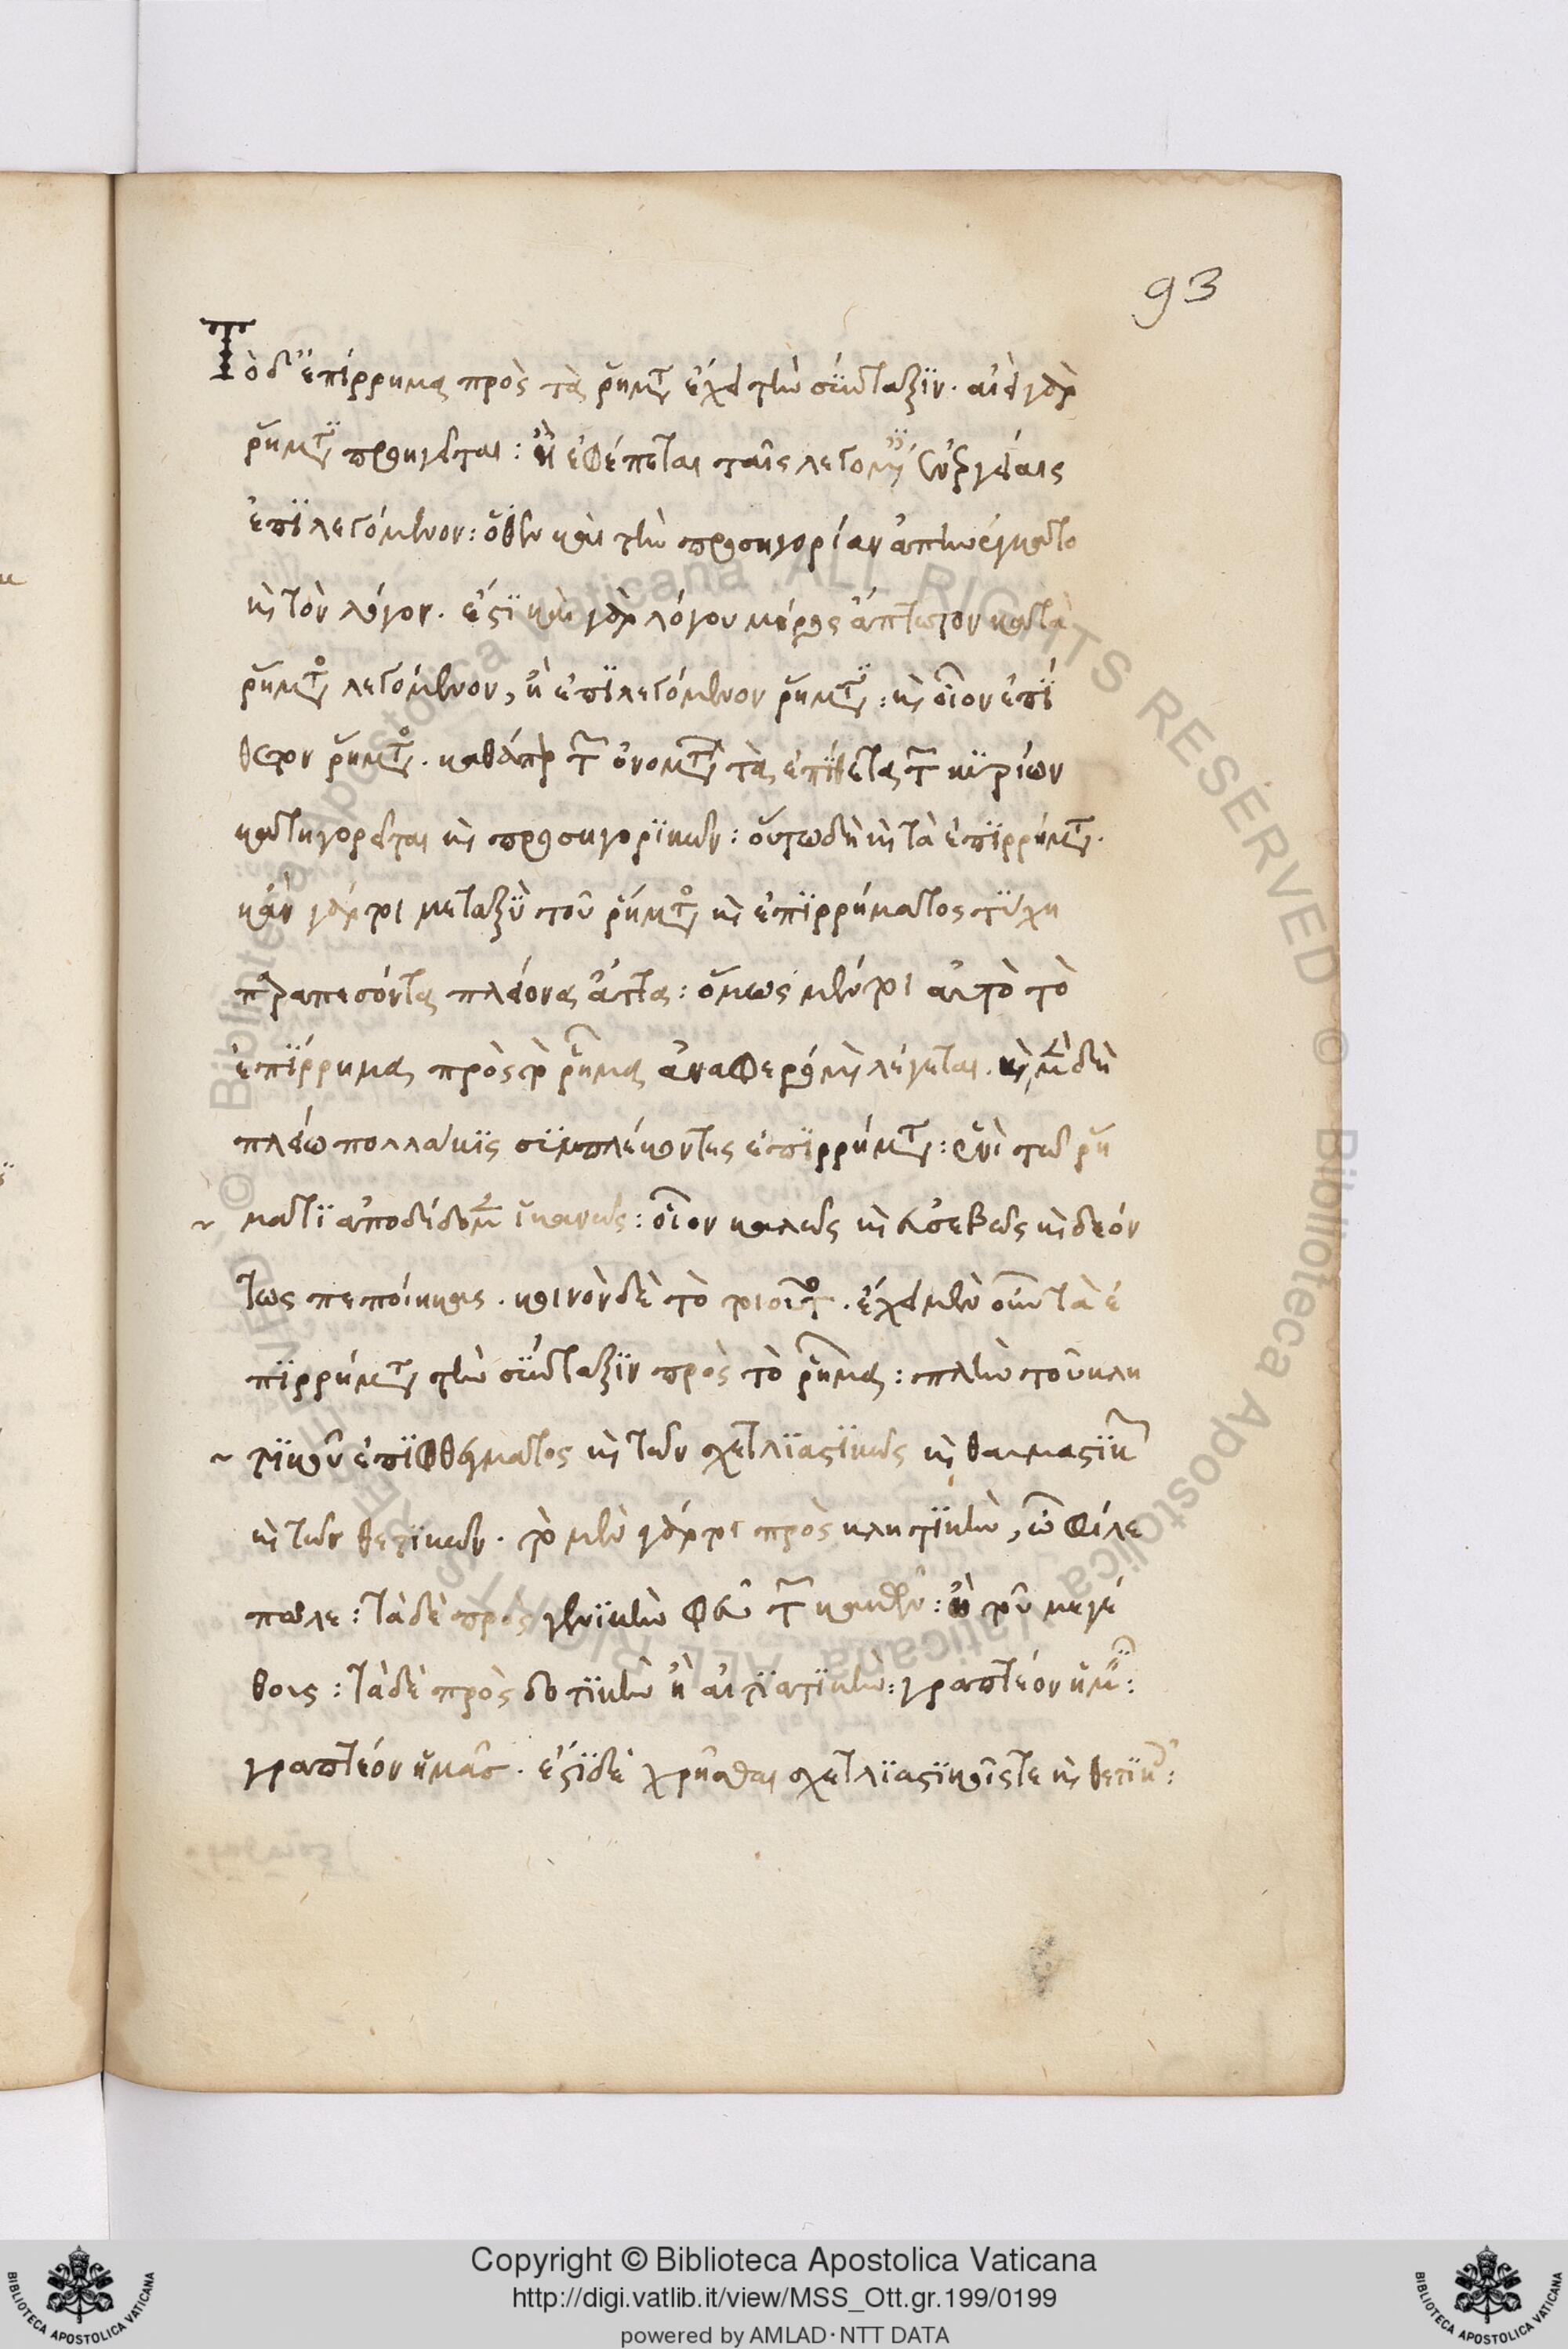 93
Τὸ δ' ἐπίρρημα πρὸς τὰ ῥήματα ἔχει τὴν σύνταξιν. αἰεὶ γὰρ
ῥήματι προηγεῖται: ἢ ἐφέπεται ταῖς λεγομέναις συζυγίαις
ἐπιλεγόμενον: ὅθεν καὶ τὴν προσηγορίαν ἀπηνέγκατο
καὶ τὸν λόγον. ἔστι καὶ γὰρ λόγου μέρος ἄπτωτον κατὰ
ῥήματος λεγόμενον, ἢ ἐπιλεγόμενον ῥήματι: καὶ οἷον ἐπί
θετον ῥήματος. καθάπερ τῶν ὀνομάτων τὰ ἐπίθετα τῶν κυρίων
κατηγορεῖται καὶ προσηγορικῶν: οὕτω δὴ καὶ τὰ ἐπιρρήματα.
κἄν γάρ τοι μεταξὺ τοῦ ῥήματος καὶ ἐπιρρήματος τύχη
παραπεσόντα πλείονα ἄττα: ὅμως μέν τοι αὐτὸ τὸ
ἐπίρρημα πρὸς τὸ ῥῆμα ἀναφερόμενον λέγεται. καὶ μὲν δὴ
πλείω πολλάκις συμπλέκοντες ἐπιρρήματα: ἑνὶ τῶ ῥή
ματι ἀποδίδομεν ἱκανῶς: οἷον καλῶς καὶ εὐσεβῶς καὶ δεόν
τως πεποίηκας. κοινὸν δὲ τὸ τοιοῦτον. ἔχει μὲν οὖν τὰ ἐ
πιρρήματα τὴν σύνταξιν πρὸς τὸ ῥῆμα: πλὴν τοῦ κλη
τικοῦ ἐπιφθέγματος καὶ τῶν σχετλιαστικῶν καὶ θαυμαστικῶν
καὶ τῶν θετικῶν. τὸ μὲν γάρ τοι πρὸς κλητικὴν, ὦ φίλε
πῶλε: τὰ δὲ πρὸς γενικὴν φεῦ τῶν κακῶν: ὢ τοῦ μεγέ
θους: τὰ δὲ πρὸς δοτικὴν ἢ αἰτιατικὴν: γραπτέον ἡμῖν:
γραπτέον ἡμᾶς. ἔστι δὲ χρῆσθαι σχετλιαστικοῖς τε καὶ θετικοῖς:
Copyright © Biblioteca Apostolica Vaticana
http://digi.vatlib.it/view/MSS_Ott.gr.199/0199
powered by AMLAD·NTT DATA